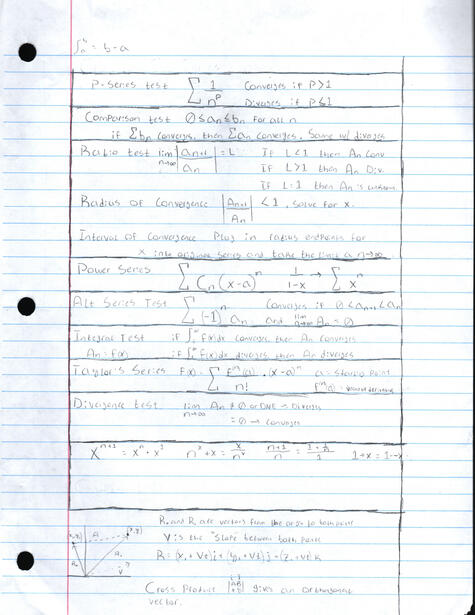 ∫ₐᵇ = b-a
P-Series test ∑ 1/n^p Converges if P>1
Diverges if P≤1
Comparison test 0≤an≤bn for all n
if ∑bn converges, then ∑an converges. Same w/ diverges
Ratio test lim n→∞ |an+1/an| = L If L<1 then An Conv
If L>1 then An Div.
If L=1 then An is
Radius of Convergence |An+1/An| <1, Solve for x.
Interval of Convergence Plug in radius endpoints for
x into original series and take the limit a n→∞.
Power Series ∑ Cn(x-a)^n 1/1-x → ∑ x^n
Alt Series Test ∑(-1)^n an Converges if 0<an+1<an
and lim n→∞ An = 0
Integral Test if ∫ f(x)dx converges, then An Converges
An = f(x) if ∫ f(x)dx diverges, then An diverges
Taylor's Series f(x)= ∑ f^n(a)/n! · (x-a)^n a = Starting Point
f^n(a) =
Divergence test lim n→∞ An ≠ 0 or DNE → Diverge
= 0 → Converges
x^n+1 = x^n · x^1 n+1/n =
R, and R are vectors from the origin to both points
V is the "Slope" between both points
Cross Product gives an orthogonal
vector.